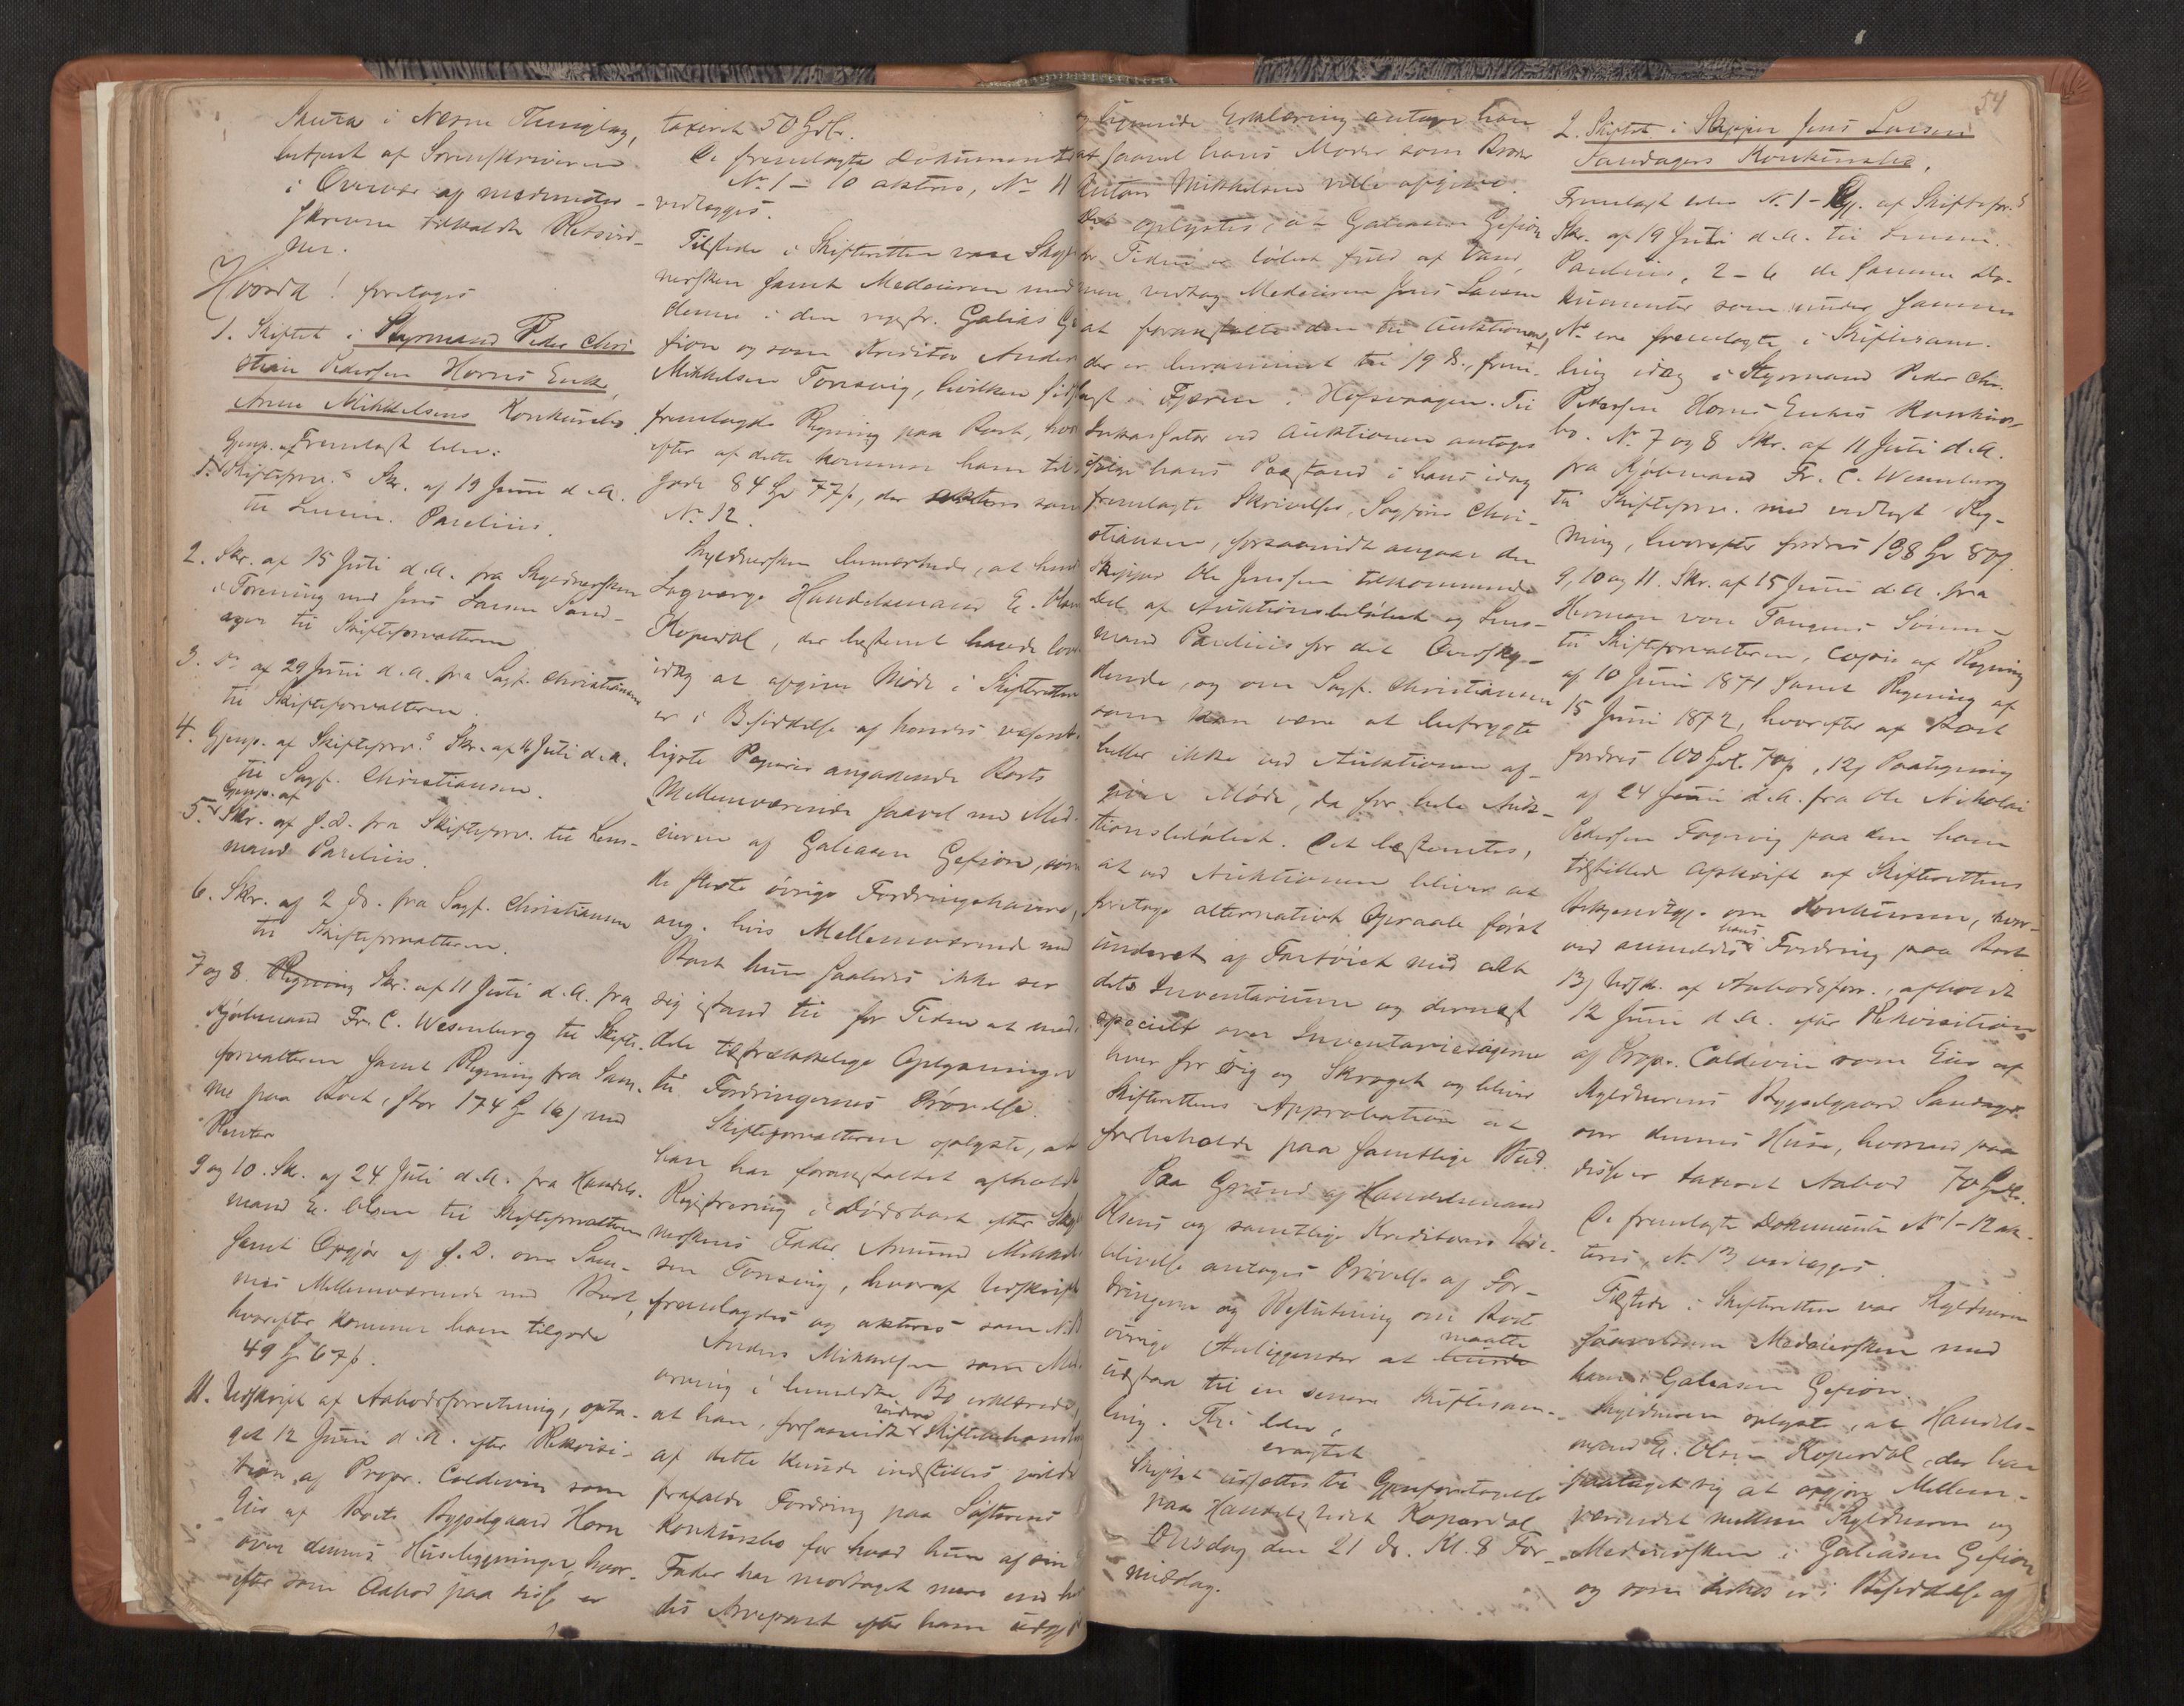 Skuta i Næsne Thinglag,
betjent af Sorenskriveren
i Overvær af medunder-
skrevne tilkaldte Retsvid-
ner.
Hvorda! foretoges
1. Skiftet i Styrmand Peder Chri
stian Pedersen Horns Enke,
Anne Mikkelsens Konkursbo.
Fremlagt blev:
1. Gjenp. af Skifteforv.s Skr. af 19 Juni d. A.
til Lensm. Parelius.
2. Skr. af 15 Juli d. A. fra Skyldnersken
i Forening med Jens Larsen Sand-
ager til Skifteforvalteren
3. Do af 29 Juni d. A. fra Sagf. Christiansen
til Skifteforvalteren.
4. Gjenp. af Skifteforv.s Skr. af 4 Juli d. A.
til Sagf. Christiansen.
Gjenp. af
5. Skr. af s. D. fra Skifteforv. til Lens-
mand Parelius.
6. Skr. af 2 ds. fra Sagf. Christiansen
til Skifteforvalteren.
7 og 8. Regning Skr. af 11 Juli d. A. fra
Kjøbmand Fr. C. Wesenberg til Skifte-
forvalteren samt Regning fra Sam-
me paa Boet, stor 174 Spd 16 s med
Renter
9 og 10. Skr. af 24 Juli d. A. fra Handels-
mand E. Olsen til Skifteforvalteren
samt Opgjør af s. D. over Sam-
mes Mellemværende med Boet,
hvorefter kommer ham tilgode
49 Spd 67 s.
11. Udskrift af Aabodsforretning, opta-
get 12 Juni d. A. efter Rekvisi-
tion af Propr. Coldevin som
Eier af Boets Bygselgaard Horn
over dennes Husebygninger, hvor-
efter som Aabod paa disse er
taxeret 50 Spdlr.
De fremlagte Dokumenter
No 1 – 10 akteres, No 11
vedlægges.
Tilstede i Skifteretten vare Skyld-
nersken samt Medeieren med
denne i den regstr. Galias Ge
fion og som Kreditor Anders
Mikkelsen Tonsvig, hvilken sidste
fremlagde Regning paa Boet, hvor
efter af dette kommer ham til-
gode 84 Spd 77 s, der akteres som
No 12.
Skyldnersken bemærkede, at hendes
Lagværge Handelsmand E. Olsen
Kopardal, der bestemt havde lovet
idag at afgive Møde i Skifteretten
er i Besiddelse af hendes væsent-
ligste Papirer angaaende Boets
Mellemværende saavel med Med-
eieren af Galeasen Gefion, som
de fleste øvrige Fordringshavere,
ang. hvis Mellemværende med
Boet hun saaledes ikke ser
sig istand til for Tiden at med-
dele tilstrækkelige Oplysninger
til Fordringernes Prøvelse.
Skifteforvalteren oplyste, at
han har foranstaltet afholdt
Registrering i Dødsboet efter Skyld
nerskens Fader Amund Mikkel
sen Tonsvig, hvoraf Udskrift
fremlagdes og akteres som No 13
Anders Mikkelsen som Med-
arving i bemeldte Bo erklærede,
at han, forsaavidt videre Skiftebehandling
af dette kunde indstilles vilde
frafalde Fordring paa Søsterens
Konkursbo for hvad hun af sin
Fader har modtaget mere end hen
des Arvepart efter ham udgjør
og lignende Erklæring antager han
at saavel hans Moder som Broder
Anton Mikkelsen ville afgive.
Det oplystes, at Galeasen Gefion
for Tiden er løbet fuld af Vand,
men vedtog Medeieren Jens Larsen
at foranstalte den til Auktionen,
der er berammet til 19 ds., frem-
lagt i Fjæren i Hofsvaagen. Til
Inkassator ved Auktionen antages
ifølge hans Paastand i hans idag
fremlagte Skrivelse, Sagfører Chri-
stiansen, forsaavidt angaar den
Skipper Ole Jenssen tilkommende
Del af Auktionsbeløbet og Lens-
mand Parelius for det Oversky-
dende, og om Sagf. Christiansen
som kan være at befrygte
heller ikke ved Auktionen af-
giver Møde, da for hele Auk-
tionsbeløbet. Det bestemtes,
at ved Auktionen bliver at
foretage alternativt Opraab først
underet af Fartøiet med alt
dets Inventarium og dernæst
specielt over Inventariesagerne
hver for sig og Skroget og bliver
Skifterettens Approbation at
forbeholde paa samtlige Bud.
Paa Grund af Handelsmand
Olsens og samtlige Kreditorers Ude-
blivelse antages Prøvelse af For-
dringerne og Beslutning om Boets
øvrige Anliggender at burde maatte
udstaa til en senere Skiftesam-
ling. Thi blev,
eragtet
Skiftet udsættes til Gjenforetagelse
paa Handelsstedet Kopardal
Onsdag den 21 ds. Kl. 8 For-
middag.
54
2. Skiftet i Skipper Jens Larsen
Sandagers Konkursbo.
Fremlagt blev No 1 – Gjp. af Skifteforv.s
Skr. af 19 Juli d. A. til Lensm.
Parelius, 2 – 6 de samme Do-
kumenter som under samme
No ere fremlagte i Skiftesam-
ling idag i Styrmand Peder Chr.
Pedersen Horns Enkes Konkurs-
bo. No 7 og 8 Skr. af 11 Juli d. A.
fra Kjøbmand Fr. C. Wesenberg
til Skifteforv. med vedlagt Reg-
ning, hvorefter fordres 138 Spd 80 s.
9, 10 og 11. Skr. af 15 Juni d. A. fra
Herman von Tangens Sønner
til Skifteforvalteren, Copie af Regning
af 10 Juni 1871 samt Regning af
15 Juni 1872, hvorefter af Boet
fordres 100 Spdl. 70 s, 12) Paategning
af 24 Juni d. A. fra Ole Nikolai
Pedersen Fagervig paa den ham
tilstillede Afskrift af Skifterettens
Bekjendtgj. om Konkursen, hvor-
ved anmeldes hans Fordring paa Boet
13) Udskr. af Aabodsforr., afholdt
12 Juni d. A. efter Rekvisition
af Propr. Coldevin som Eier af
Skyldnerens Bygselgaard Sandager
over dennes Huse, hvorved paa
disse er taxeret Aabod 70 Spdl.
De fremlagte Dokumenter No 1 – 12 ak-
teres, No 13 vedlægges.
Tilstede i Skifteretten var Skyldneren
saavelsom Medeiersken med
ham i Galeasen Gefion.
Skyldneren oplyste, at Handels-
mand E. Olsen Kopardal, der har
paataget sig at opgjøre Mellem-
værendet mellem Skyldneren og
Medeiersken i Galeasen Gefion
og som er i Besiddelse af